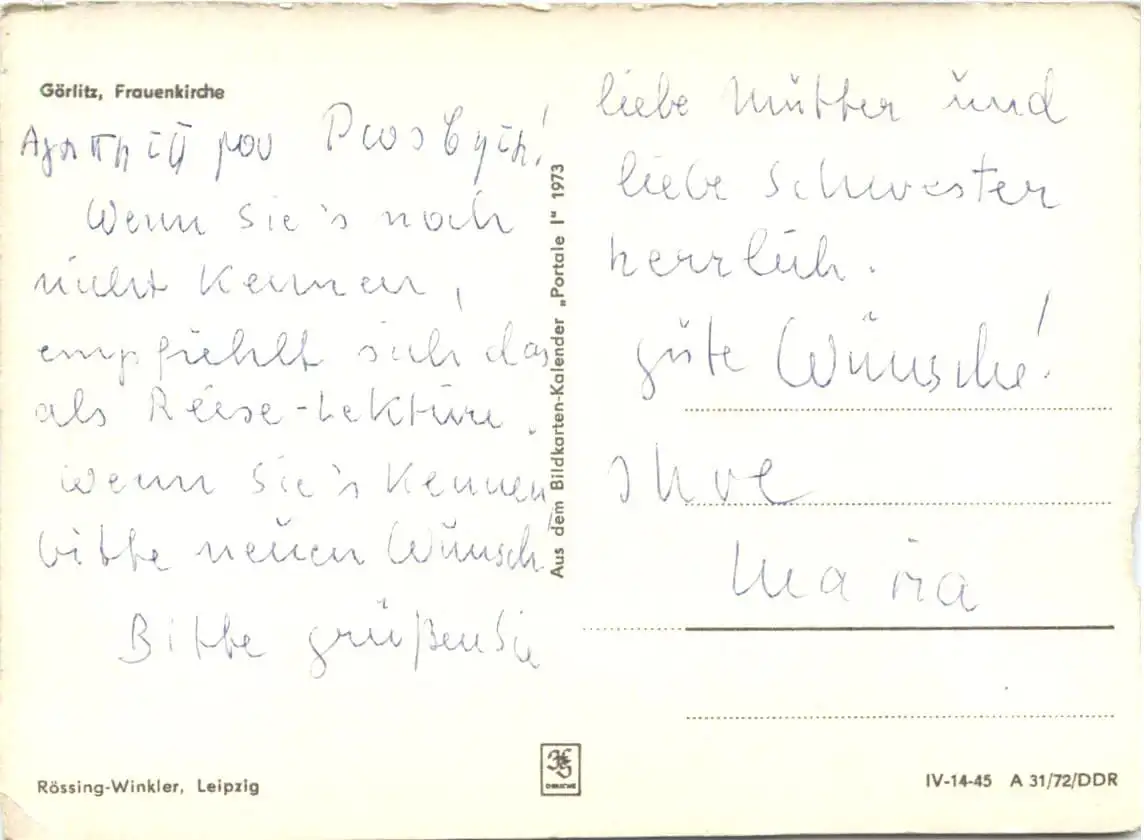 Görlitz, Frauenkirche
μου
Wenn Sie's noch
nicht kennen,
empfiehlt sich das
als Reise-Lektüre.
Wenn Sie's kennen
bitte neuen Wunsch!
Bitte grüßen Sie
liebe Mutter und
liebe Schwester
herrlich.
gute Wünsche!
Ihre
Maria
Aus dem Bildkarten-Kalender „Portale I“ 1973
Rössing-Winkler, Leipzig
IV-14-45 A 31/72/DDR